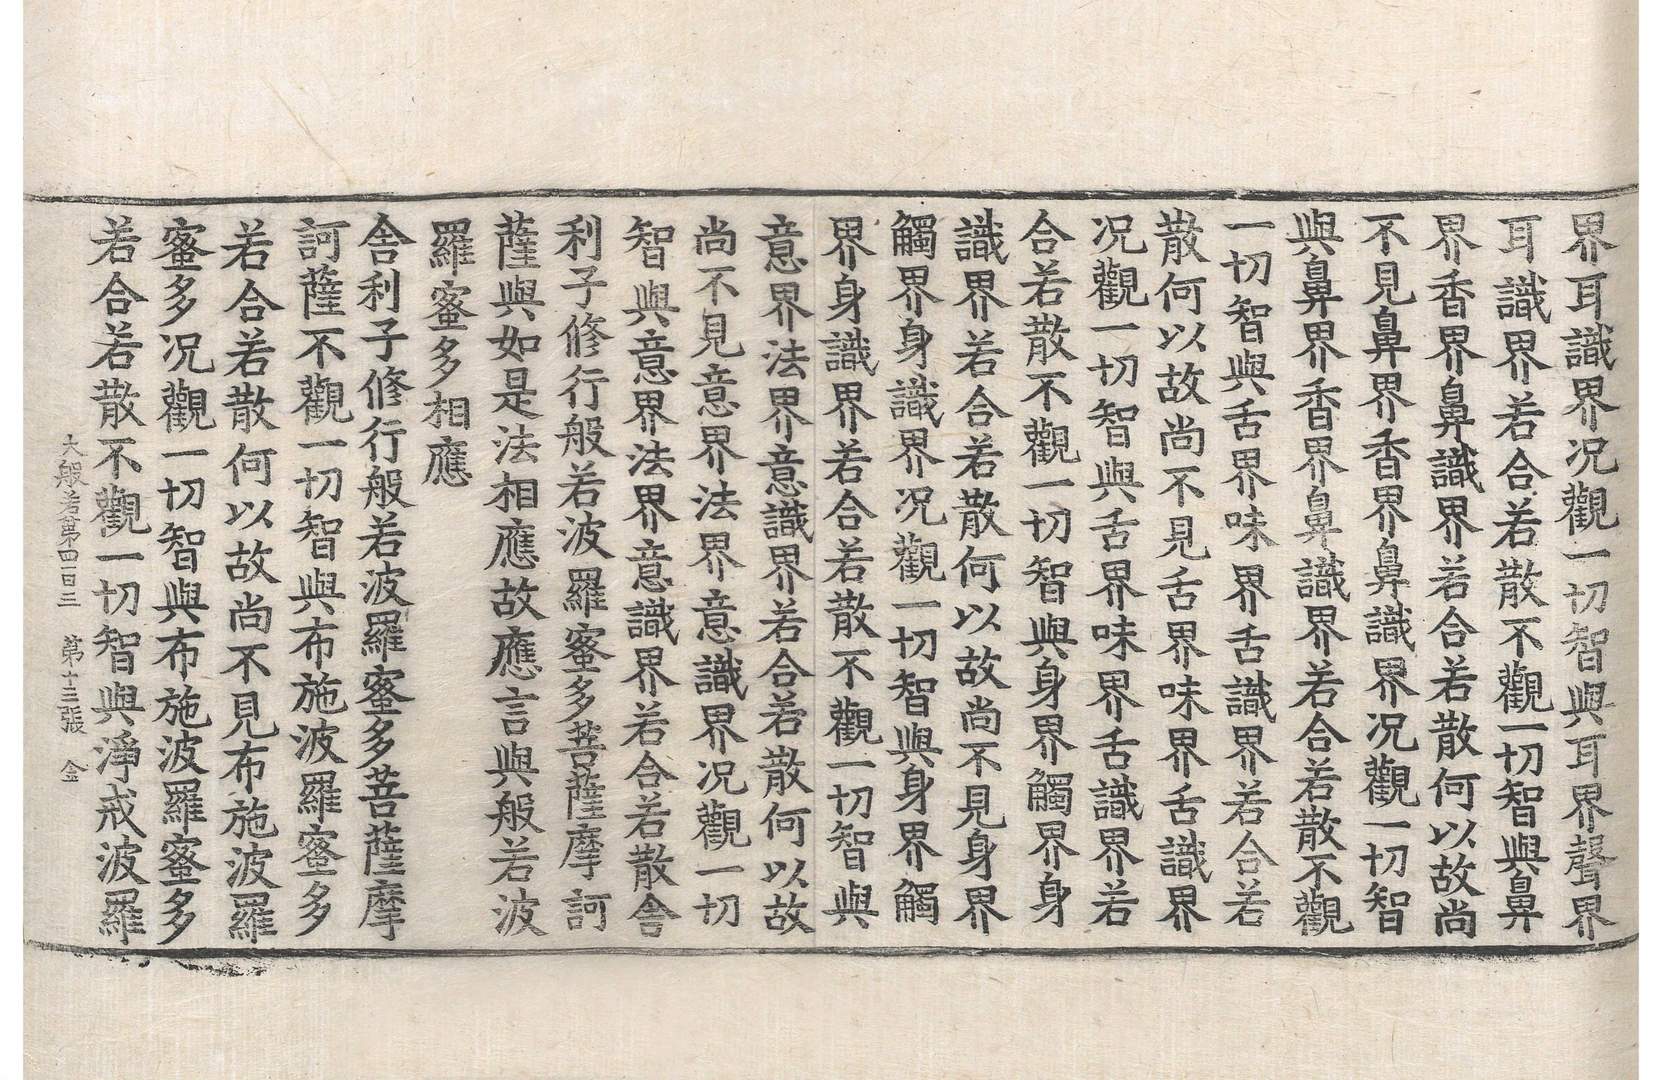 界耳識界况觀一切智與耳界聲界
耳識界若合若散不觀一切智與鼻
界香界鼻識界若合若散何以故尚
不見鼻界香界鼻識界况觀一切智
與鼻界香界鼻識界若合若散不觀
一切智與舌界味界舌識界若合若
散何以故尚不見舌界味界舌識界
况觀一切智與舌界味界舌識界若
合若散不觀一切智與身界觸界身
識界若合若散何以故尚不見身界
觸界身識界况觀一切智與身界觸
界身識界若合若散不觀一切智與
意界法界意識界若合若散何以故
尚不見意界法界意識界况觀一切
智與意界法界意識界若合若散舎
利子修行般若波羅蜜多菩薩摩訶
薩與如是法相應故應言與般若波
羅蜜多相應
舎利子修行般若波羅蜜多菩薩摩
訶薩不觀一切智與布施波羅蜜多
若合若散何以故尚不見布施波羅
蜜多况觀一切智與布施波羅蜜多
若合若散不觀一切智與淨戒波羅
大般若第四百三　第十三張　金